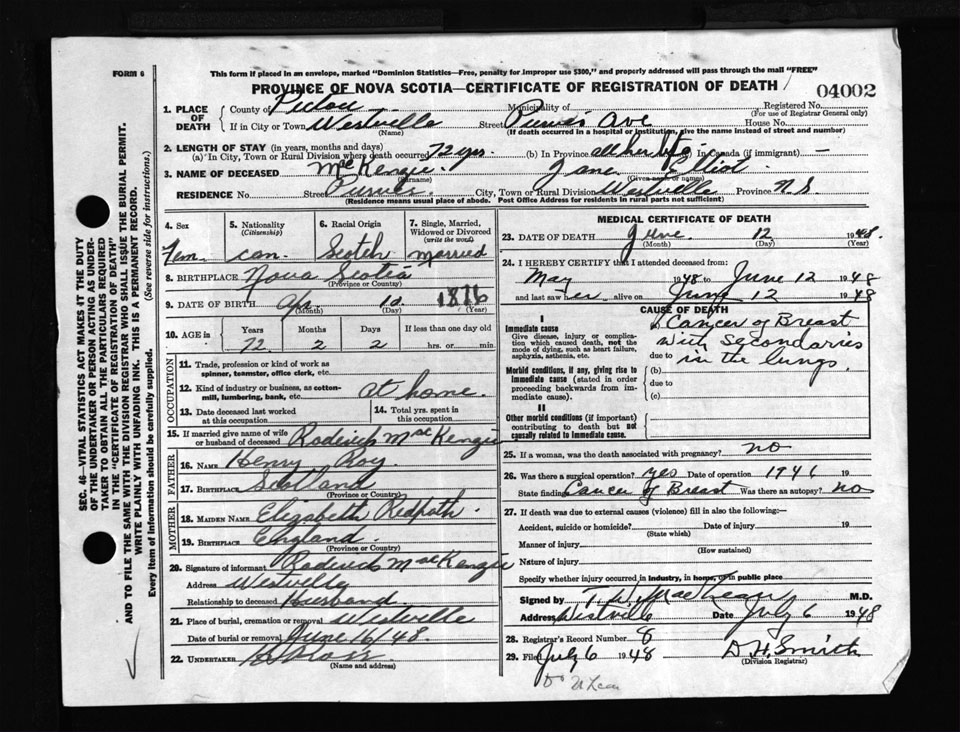 FORM 6
This form if placed in an envelope, marked "Dominion Statistics—Free, penalty for improper use $300," and properly addressed will pass through the mail "FREE"
PROVINCE OF NOVA SCOTIA—CERTIFICATE OF REGISTRATION OF DEATH
04002
1. PLACE OF DEATH
County of Pictou Municipality of Registered No.
(For use of Registrar General only)
If in City or Town Westville Street Purves Ave House No.
(Name) (If death occurred in a hospital or institution, give the name instead of street and number)
2. LENGTH OF STAY (in years, months and days)
(a) In City, Town or Rural Division where death occurred 72 yrs. (b) In Province all her life (c) In Canada (if immigrant) —
3. NAME OF DECEASED McKenzie Jane Elliot
(Surname) (Given name or names)
RESIDENCE No. Street Purves City, Town or Rural Division Westville Province N.S.
(Residence means usual place of abode. Post Office Address for residents in rural parts not sufficient)
4. Sex
Fem
5. Nationality
(Citizenship)
can.
6. Racial Origin
Scotch
7. Single, Married, Widowed or Divorced
(write the word)
married
8. BIRTHPLACE Nova Scotia
(Province or Country)
9. DATE OF BIRTH Apr. 10 1876
(Month) (Day) (Year)
10. AGE in Years Months Days If less than one day old
72 2 2 hrs. or min.
OCCUPATION
11. Trade, profession or kind of work as spinner, teamster, office clerk, etc.
12. Kind of industry or business, as cotton-mill, lumbering, bank, etc. at home.
13. Date deceased last worked at this occupation
14. Total yrs. spent in this occupation
15. If married give name of wife or husband of deceased Roderick MacKenzie
FATHER
16. NAME Henry Roy.
17. BIRTHPLACE Scotland
(Province or Country)
MOTHER
18. MAIDEN NAME Elizabeth Redpath.
19. BIRTHPLACE England
(Province or Country)
20. Signature of informant Roderick MacKenzie
Address Westville
Relationship to deceased Husband
21. Place of burial, cremation or removal Westville
Date of burial or removal June 16/48
22. UNDERTAKER
(Name and address)
MEDICAL CERTIFICATE OF DEATH
23. DATE OF DEATH June 12 1948.
(Month) (Day) (Year)
24. I HEREBY CERTIFY that I attended deceased from:
May 1948 to June 12 1948
and last saw her alive on June 12 1948
CAUSE OF DEATH
I
Immediate cause
Give disease, injury or complication which caused death, not the mode of dying, such as heart failure, asphyxia, asthenia, etc.
Cancer of Breast
with Secondaries
due to in the lungs.
Morbid conditions, if any, giving rise to immediate cause (stated in order proceeding backwards from immediate cause).
(b)
due to
(c)
II
Other morbid conditions (if important) contributing to death but not causally related to immediate cause.
25. If a woman, was the death associated with pregnancy? no
26. Was there a surgical operation? yes Date of operation 1946 19
State finding Cancer of Breast Was there an autopsy? no
27. If death was due to external causes (violence) fill in also the following:—
Accident, suicide or homicide? Date of injury 19
(State which)
Manner of injury
(How sustained)
Nature of injury
Specify whether injury occurred in industry, in home, or in public place
Signed by M.D.
Address Westville Date July 6 1948
28. Registrar's Record Number 8
29. File July 6 1948 D.H. Smith
(Division Registrar)
SEC. 46—VITAL STATISTICS ACT MAKES IT THE DUTY
OF THE UNDERTAKER OR PERSON ACTING AS UNDER-
TAKER TO OBTAIN ALL THE PARTICULARS REQUIRED
IN THE "CERTIFICATE OF REGISTRATION OF DEATH"
AND TO FILE THE SAME WITH THE DIVISION REGISTRAR WHO SHALL ISSUE THE BURIAL PERMIT.
WRITE PLAINLY WITH UNFADING INK. THIS IS A PERMANENT RECORD.
Every item of information should be carefully supplied. (See reverse side for instructions.)